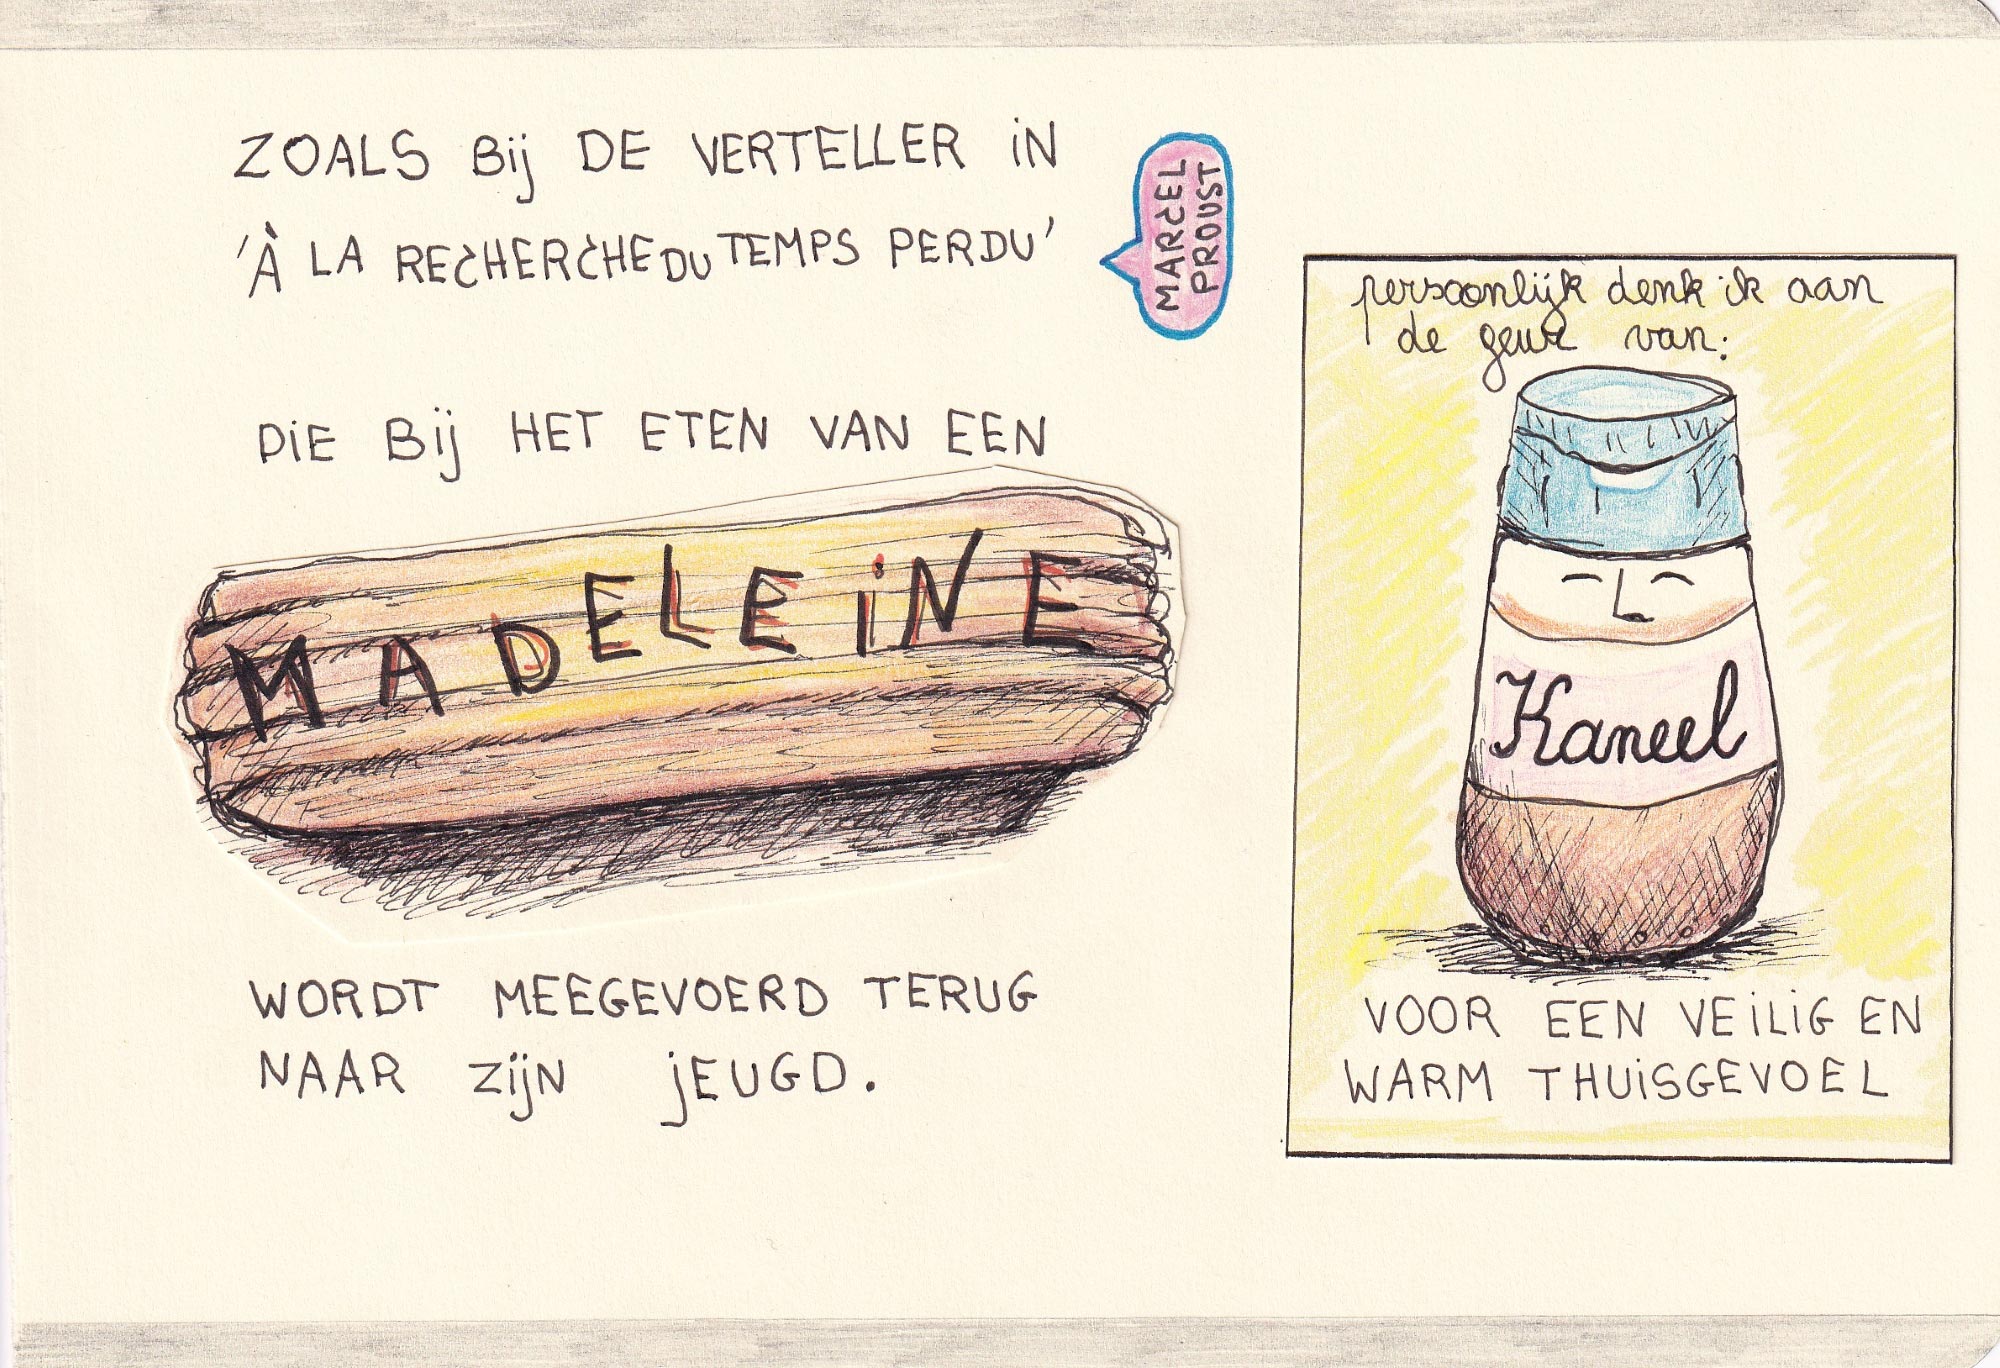 ZOALS Bij DE VERTELLER iN
'À LA RECHERCHE DU TEMPS PERDU'
MARCEL
PROUST
DiE Bij HET ETEN VAN EEN
MADELEiNE
WORDT MEEGEVOERD TERUG
NAAR Zijn jEUGD.
persoonlijk denk ik aan
de geur van:
Kaneel
VOOR EEN VEiLiG EN
WARM THUiSGEVOEL